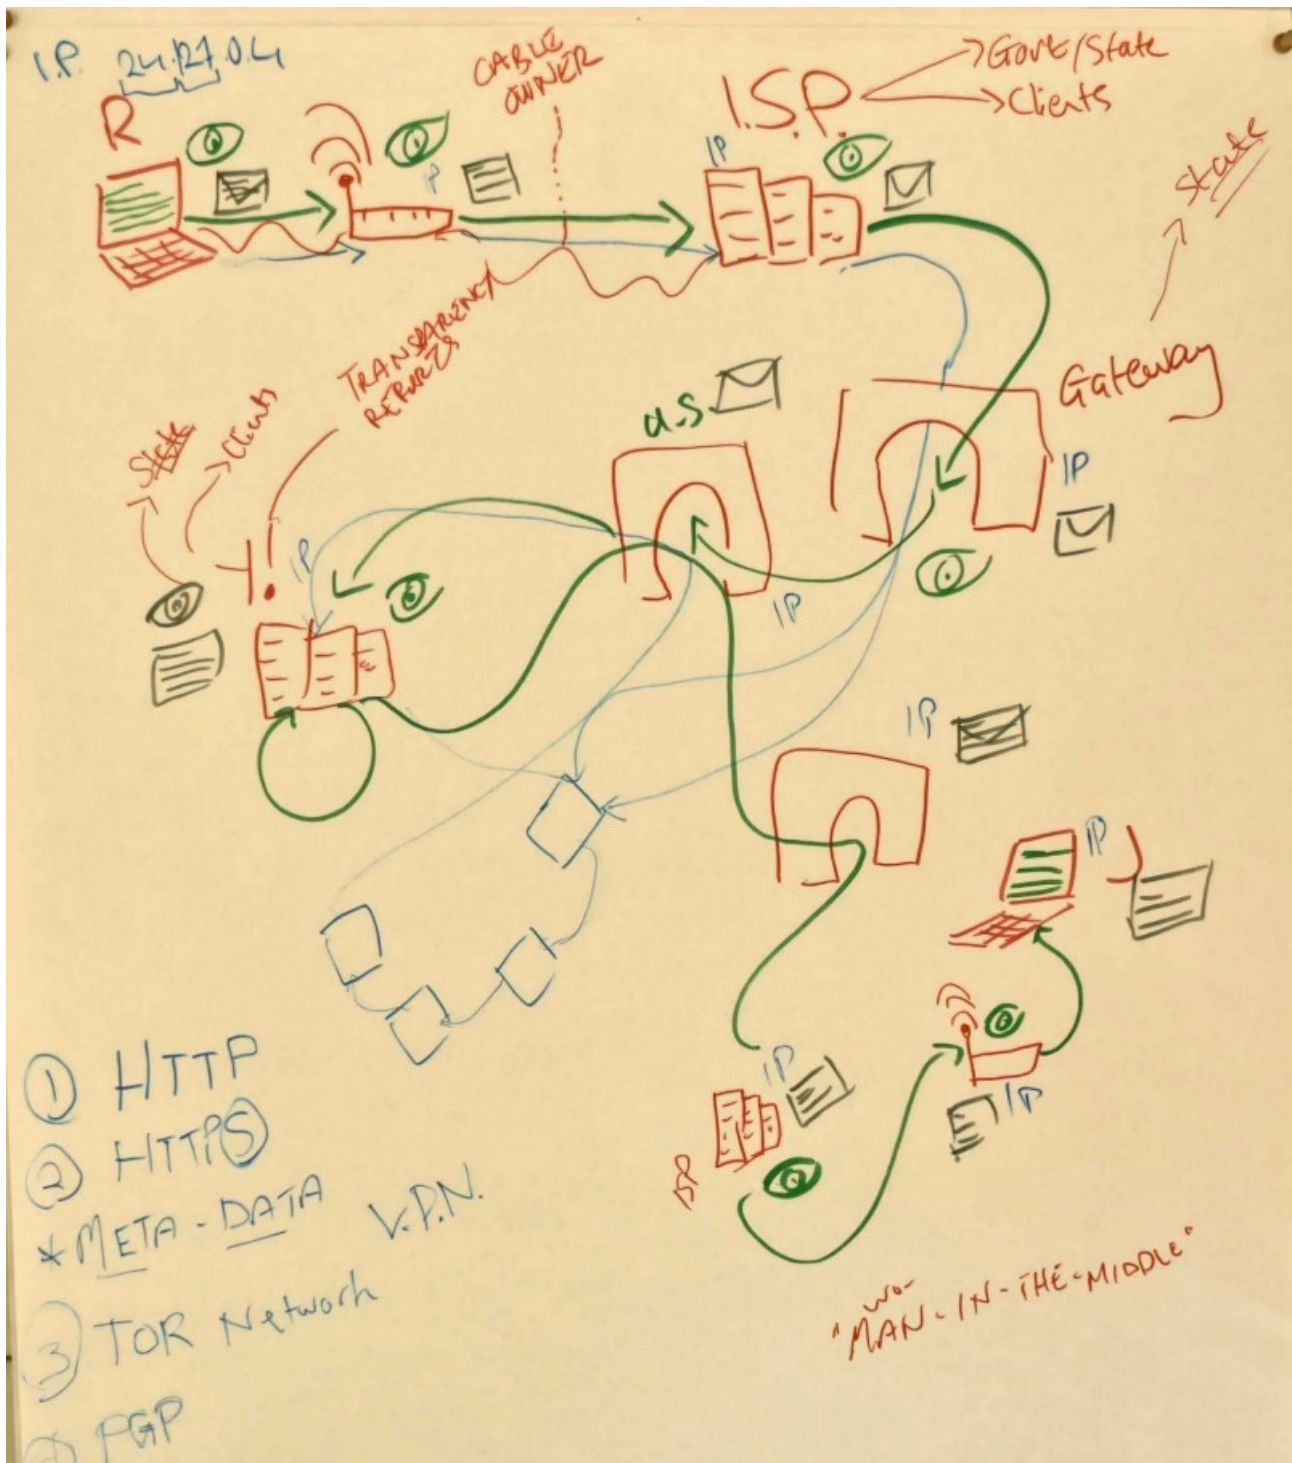 I.P. 24.127.0.4
R
CABLE
OWNER
I.S.P.
Govt/State
Clients
IP
IP
State
Gateway
IP
TRANSPARENCY
REPORTS
U.S
State
Clients
Y!
IP
IP
IP
IP
J
IP
IP
ISP
① HTTP
② HTTPS
* META-DATA
V.P.N.
③ TOR Network
PGP
WO-
"MAN-IN-THE-MIDDLE"